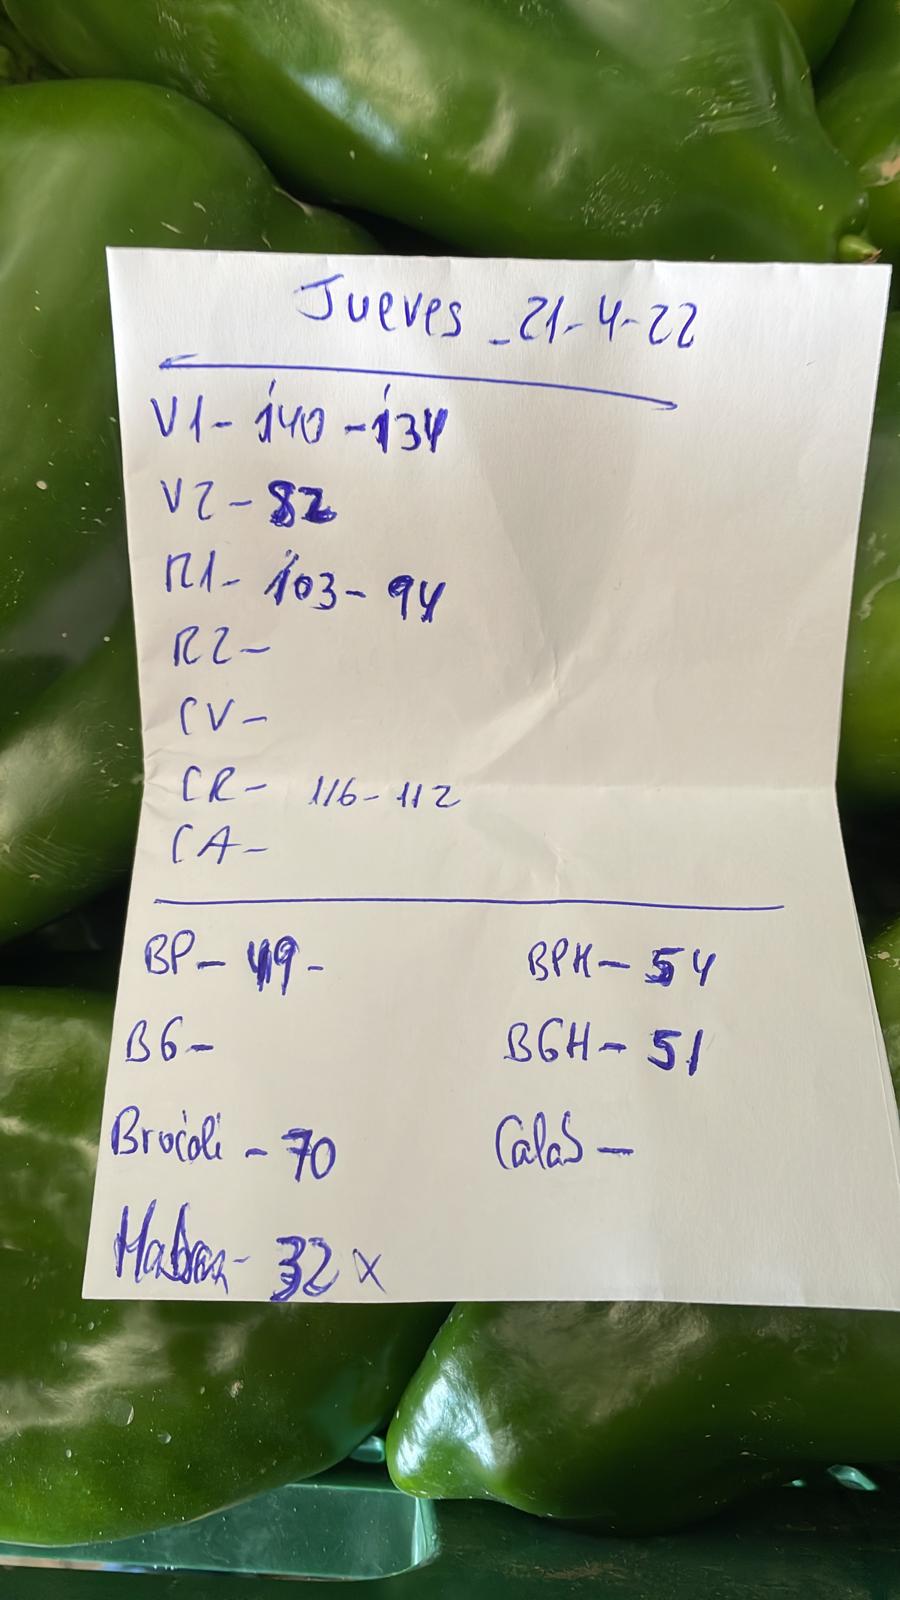 Jueves - 21-4-22
V1- 140 - 134
V2- 82
R1- 103- 94
R2-
CV-
CR- 116-112
CA-
BP- 49- BPH- 54
BG- BGH- 51
Brócoli - 70 Calab -
Habas- 32 x